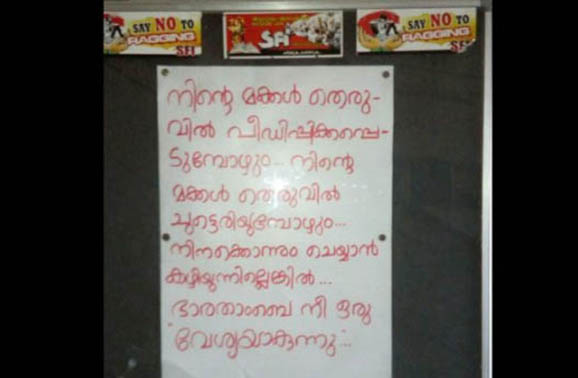 SAY NO TO
RAGGING
SFI
SFI
SAY NO TO
RAGGING
SFI
നിന്റെ മക്കൾ തെരു-
വിൽ പീഡിപ്പിക്കപ്പെ-
ടുമ്പോഴും... നിന്റെ
മക്കൾ തെരുവിൽ
ചുട്ടെരിയുമ്പോഴും...
നിനക്കൊന്നും ചെയ്യാൻ
കഴിയുന്നില്ലെങ്കിൽ...
ഭാരതാംബെ നീ ഒരു
"വേശ്യയാകുന്നു"...